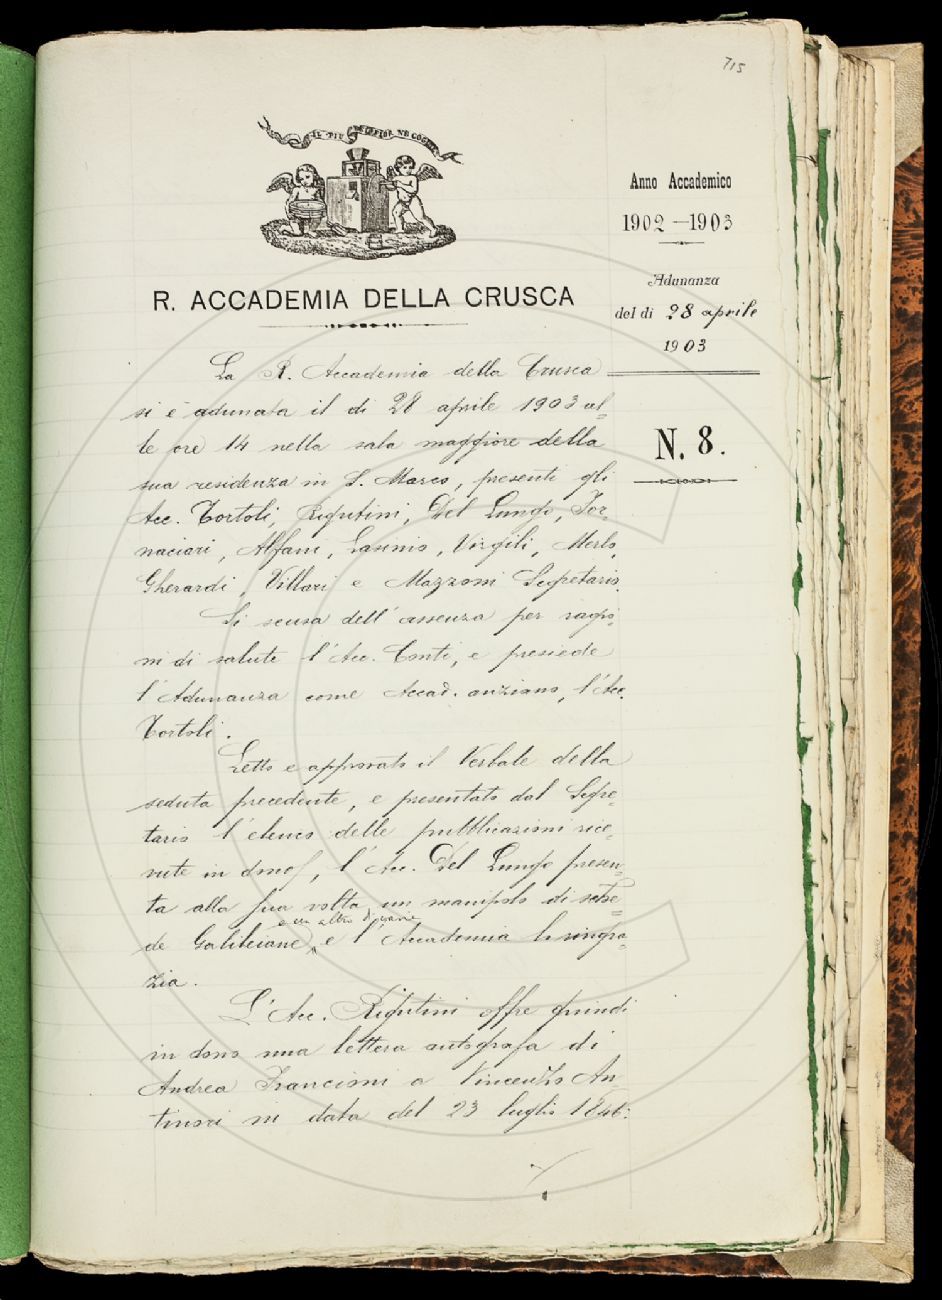 715
IL PIÙ BEL FIOR NE COGLIE
Anno Accademico
1902-1903
Adunanza
del dì 28 aprile
1903
N. 8.
R. ACCADEMIA DELLA CRUSCA
La R. Accademia della Crusca
si è adunata il dì 28 aprile 1903 al=
le ore 14 nella sala maggiore della
sua residenza in S. Marco, presenti gli
Acc. Tortoli, Rigutini, Del Lungo, For=
naciari, Alfani, Lasinio, Virgili, Merlo,
Gherardi, Villari e Mazzoni Segretario.
Si scusa dell'assenza per ragio=
ni di salute l'Acc. Conti, e presiede
l'Adunanza come Accad. anziano, l'Acc.
Tortoli.
Letto e approvato il Verbale della
seduta precedente, e presentato dal Segre=
tario l'elenco delle pubblicazioni rice=
vute in dono, l'Acc. Del Lungo presen=
ta alla sua volta un manipolo di sche=
de Galileiane e un altro di varie, e l'Accademia lo ringra=
zia.
L'Acc. Rigutini offre quindi
in dono una lettera autografa di
Andrea Francioni a Vincenzo An=
tinori in data del 23 luglio 1846: